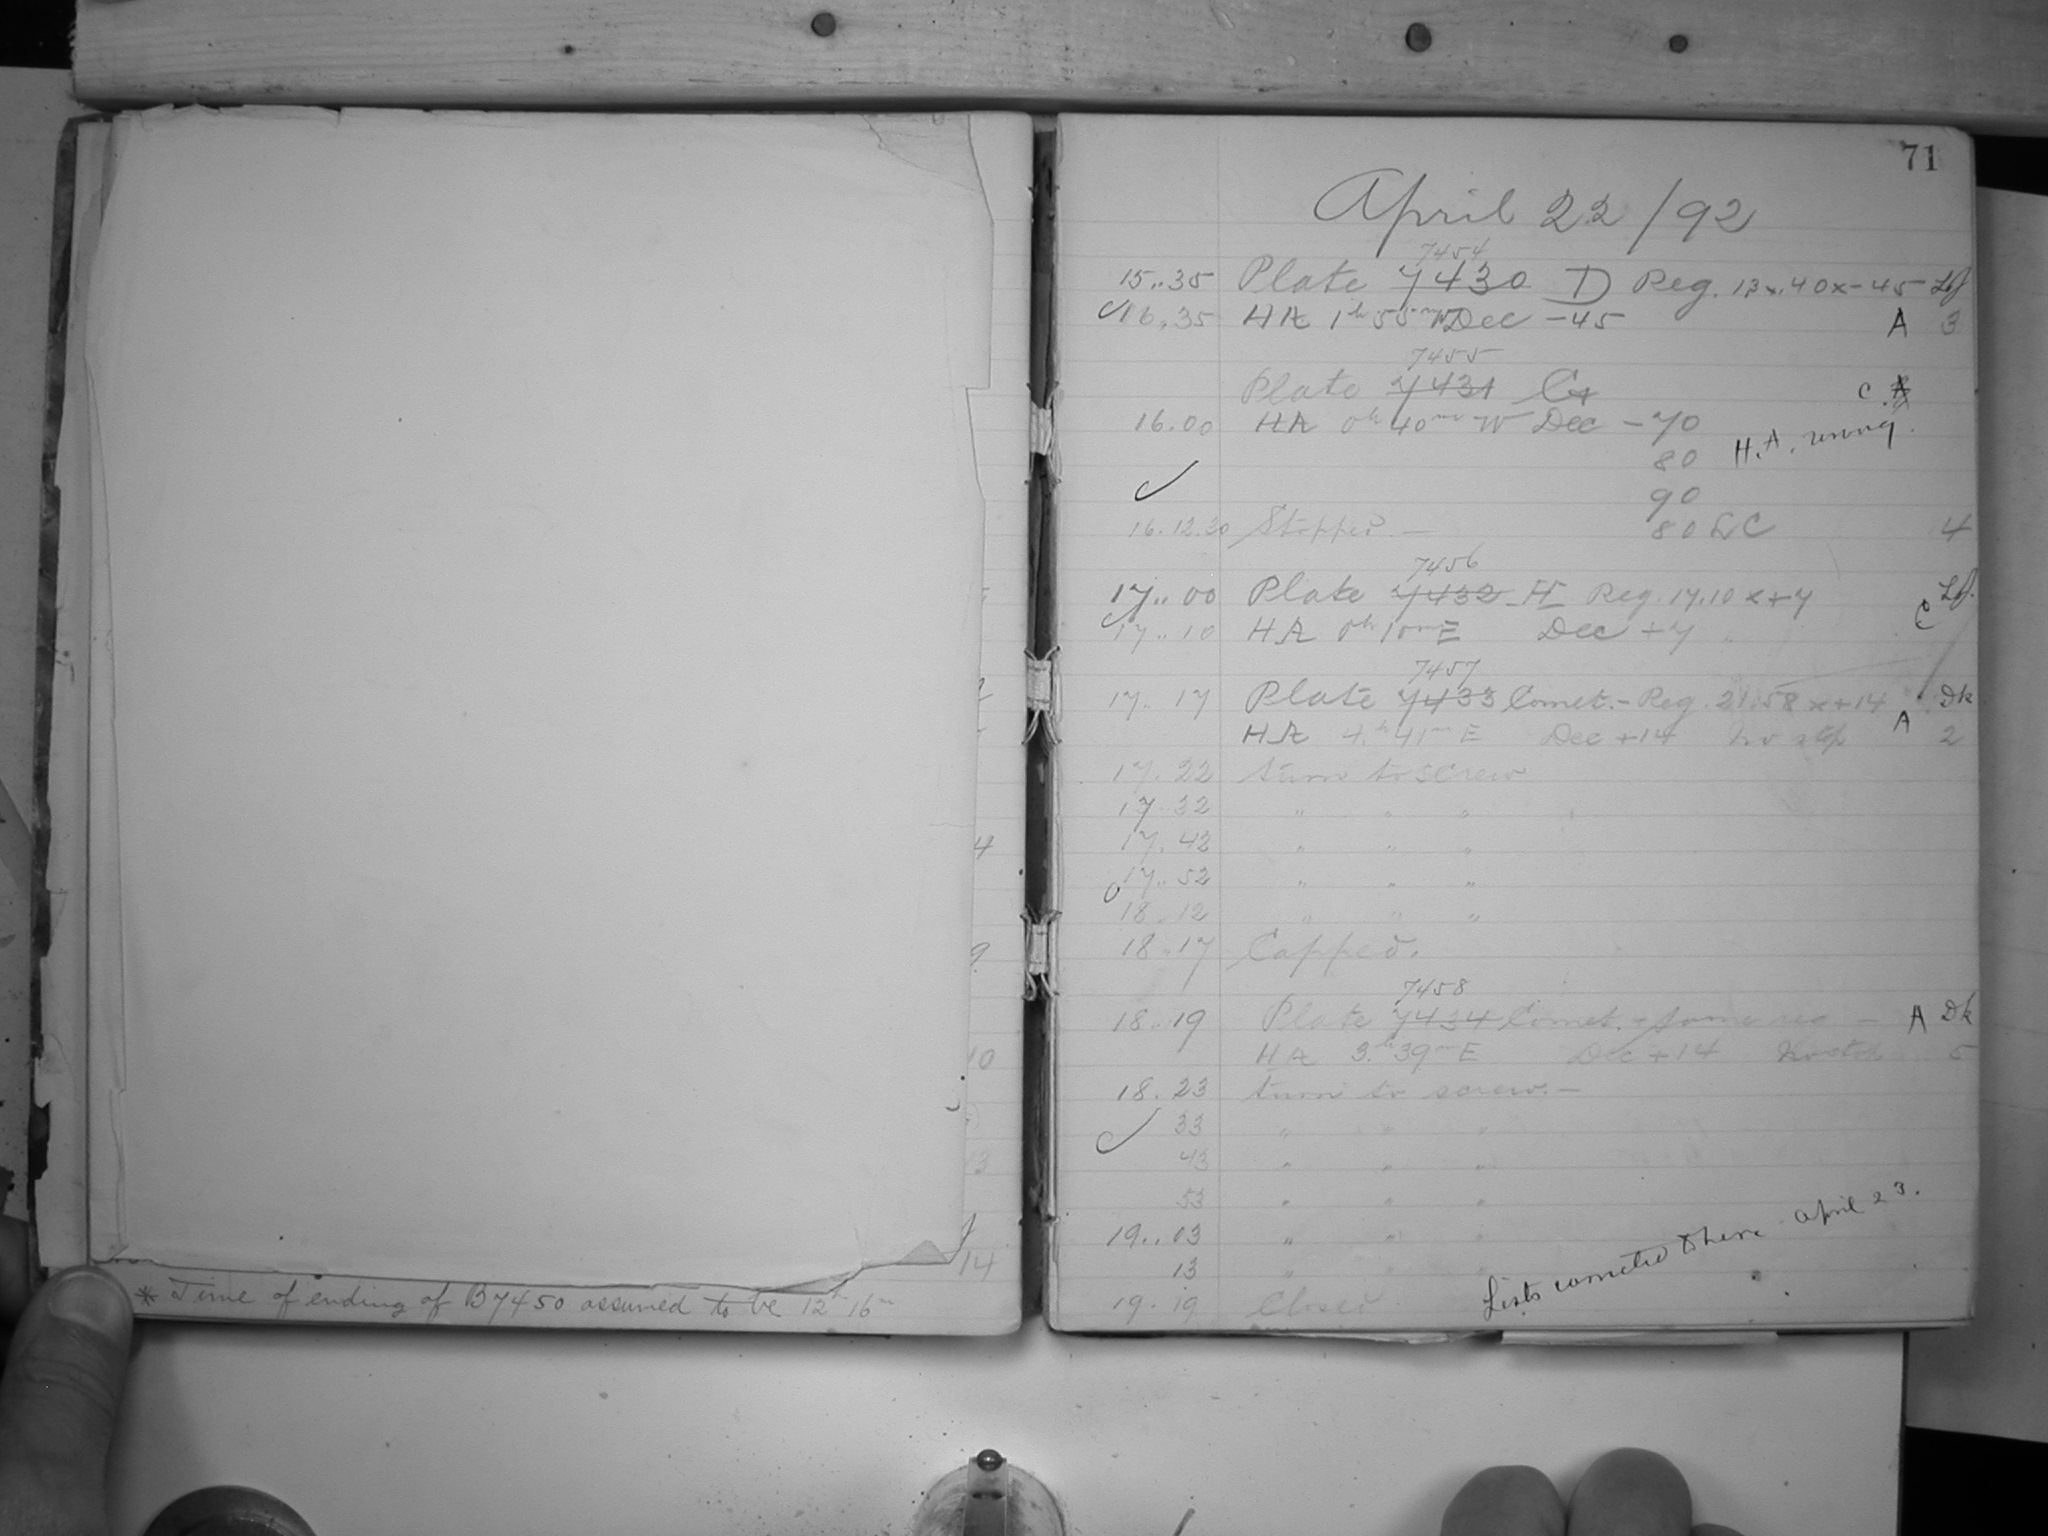 71
April 22/92
7454
15..35 Plate 7430 D Reg. 13x.40x-45
16.35 HA 1h 55m W Dec -45 A 3
7455
Plate 7431 C+ C.
16.00 HA 0h 40m W Dec -70
80 H.A. wrong.
90
16.12.30 Stopped. — 80 L C 4
7456
17..00 Plate 7432 H Reg. 17.10 x+7
17..10 HA 0h 10m E Dec +7 " C
7457
17..17 Plate 7433 Comet.- Reg. 21.58 x+14 Dk
HA 4h 41m E Dec +14 No stop A 2
17.22 turn to screw
17.32 " " "
17.42 " " "
17..52 " " "
18.12 " " "
18..17 Capped.
7458
18..19 Plate 7434 Comet.- same reg — A Dk
HA 3h 39m E Dec +14 No stop 5
18.23 turn to screw.—
33 " " "
43 " " "
53 " " "
19..03 " " "
13 " "
19.19 Closed
Lists corrected to here April 23.
4
9
10
13
14
* Time of ending of B7450 assumed to be 12h 16m